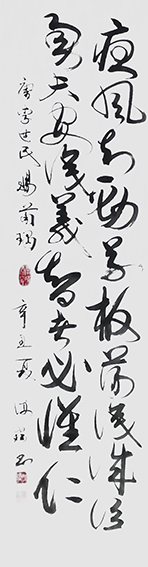 疾風知勁草板蕩識誠臣
勇夫安識義智者必懷仁
唐李世民賜蕭瑀
辛丑夏